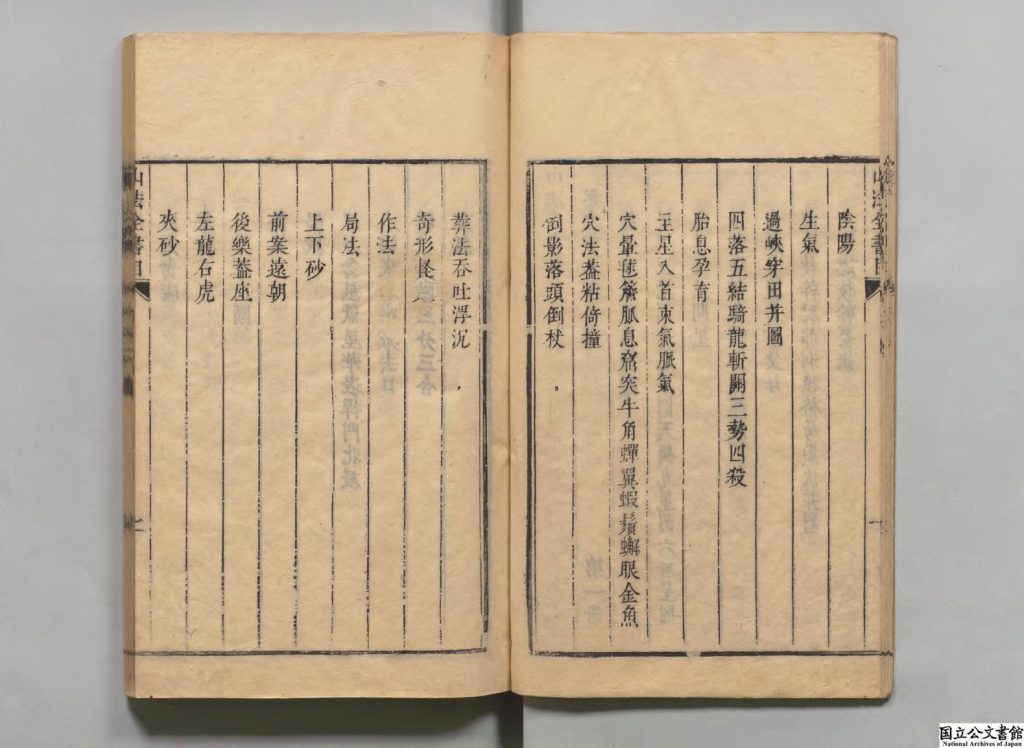 陰陽
生氣
過峽穿田并圖
四落五結騎龍斬關三勢四殺
胎息孕育
主星入首束氣脈氣
穴暈毬簷脈息窟突牛角蟬翼蝦鬚蠏眼金魚
穴法葢粘倚撞
倒影落頭倒杖
葬法吞吐浮沉
奇形怪穴
作法
局法
上下砂
前案遠朝
後樂葢座
左龍右虎
夾砂
山法全書目
国立公文書館
National Archives of Japan